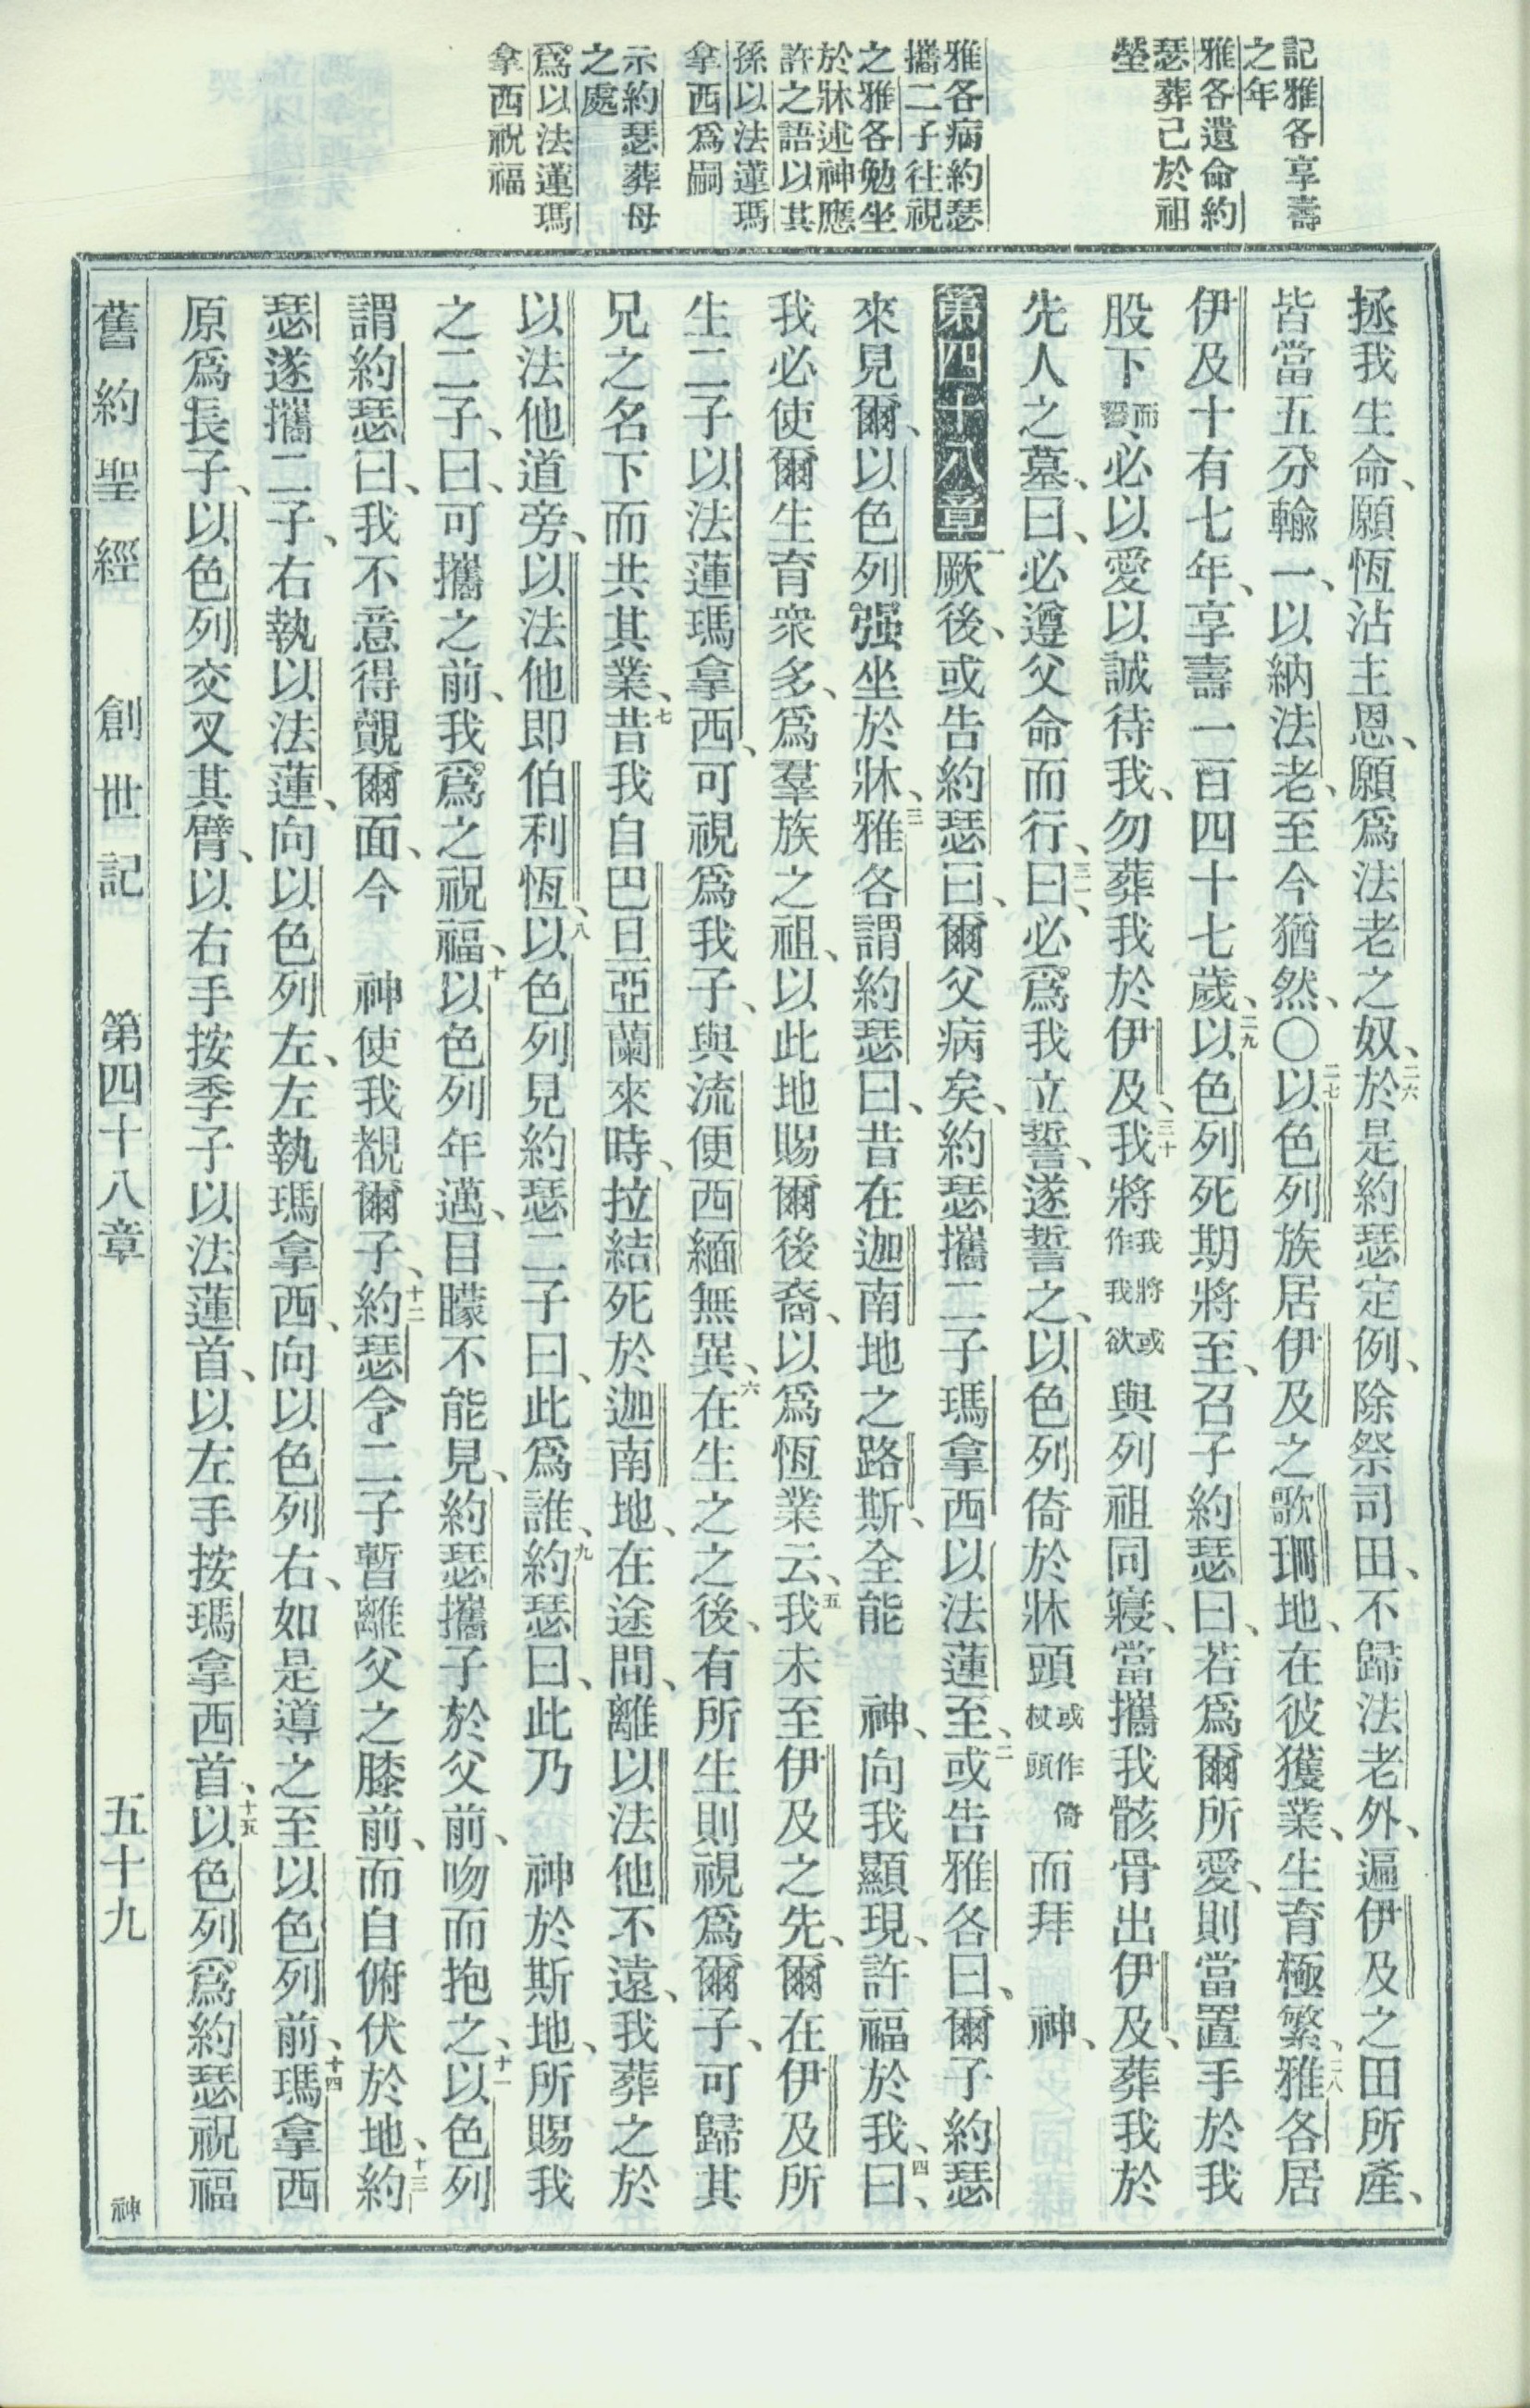 記雅各享壽
之年
雅各遺命約
瑟葬己於祖
塋
雅各病約瑟
攜二子往視
之雅各勉坐
於牀述神應
許之語以其
孫以法蓮瑪
拿西爲嗣
示約瑟葬母
之處
爲以法蓮瑪
拿西祝福
拯我生命、願恆沾主恩、願爲法老之奴、二六於是約瑟定例、除祭司田、不歸法老外、遍伊及之田所產、
皆當五分輸一、以納法老、至今猶然、〇二七以色列族居伊及之歌珊地、在彼獲業、生育極繁、二八雅各居
伊及十有七年、享壽一百四十七歲、二九以色列死期將至、召子約瑟曰、若爲爾所愛、則當置手於我
股下而誓、必以愛以誠待我、勿葬我於伊及、三十我將我將或作我欲與列祖同寢、當攜我骸骨出伊及、葬我於
先人之墓、曰、必遵父命而行、三一曰、必爲我立誓、遂誓之、以色列倚於牀頭或作倚杖頭而拜 神、
第四十八章 一厥後、或告約瑟曰、爾父病矣、約瑟攜二子瑪拿西以法蓮至、二或告雅各曰、爾子約瑟
來見爾、以色列强坐於牀、三雅各謂約瑟曰、昔在迦南地之路斯、全能 神、向我顯現、許福於我、四曰、
我必使爾生育衆多、爲羣族之祖、以此地賜爾後裔、以爲恆業云、五我未至伊及之先、爾在伊及所
生二子以法蓮瑪拿西、可視爲我子、與流便西緬無異、六在生之之後、有所生則視爲爾子、可歸其
兄之名下而共其業、七昔我自巴旦亞蘭來時、拉結死於迦南地、在途間、離以法他不遠、我葬之於
以法他道旁、以法他即伯利恆、八以色列見約瑟二子曰、此爲誰、九約瑟曰、此乃 神於斯地、所賜我
之二子、曰、可攜之前、我爲之祝福、十以色列年邁、目矇不能見、約瑟攜子於父前、吻而抱之、十一以色列
謂約瑟曰、我不意得覿爾面、今 神使我覩爾子、十二約瑟令二子暫離父之膝前、而自俯伏於地、十三約
瑟遂攜二子、右執以法蓮、向以色列左、左執瑪拿西、向以色列右、如是導之至以色列前、十四瑪拿西
原爲長子、以色列交叉其臂、以右手按季子以法蓮首、以左手按瑪拿西首、十五以色列爲約瑟祝福
舊約聖經 創世記 第四十八章 五十九 神